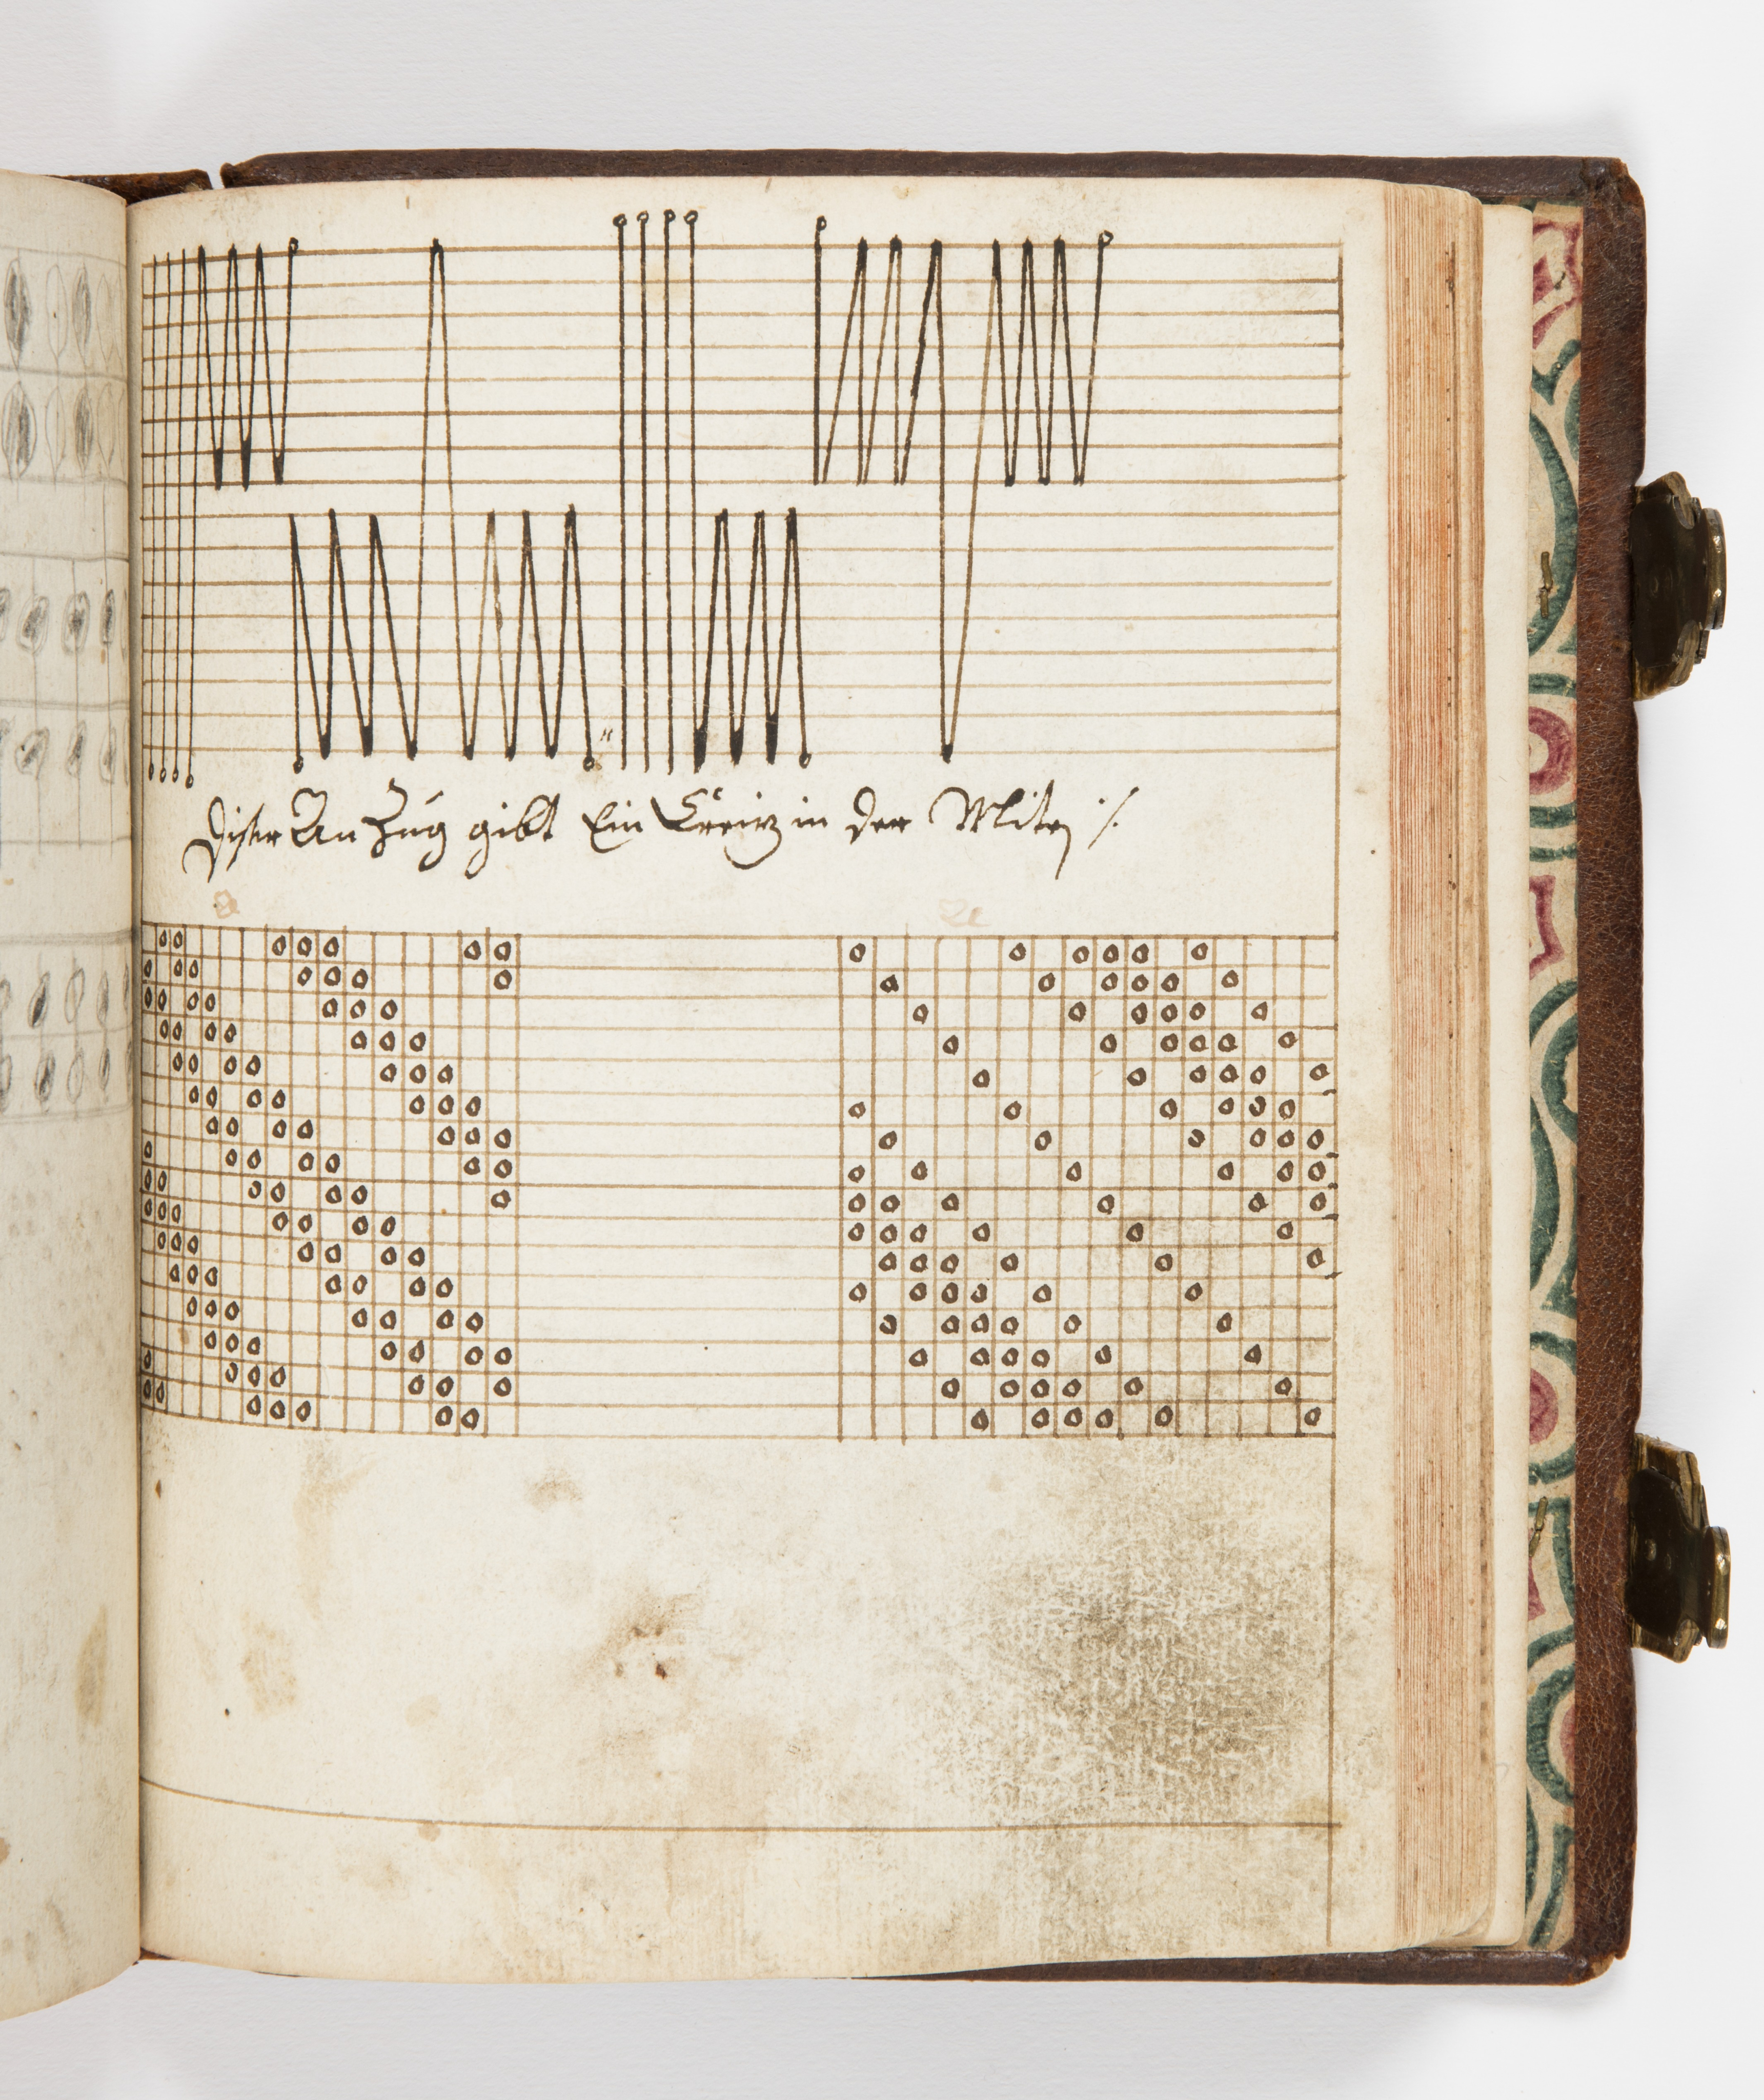 Diser An Zug gibt Ein Creiz in der Mite ·/.